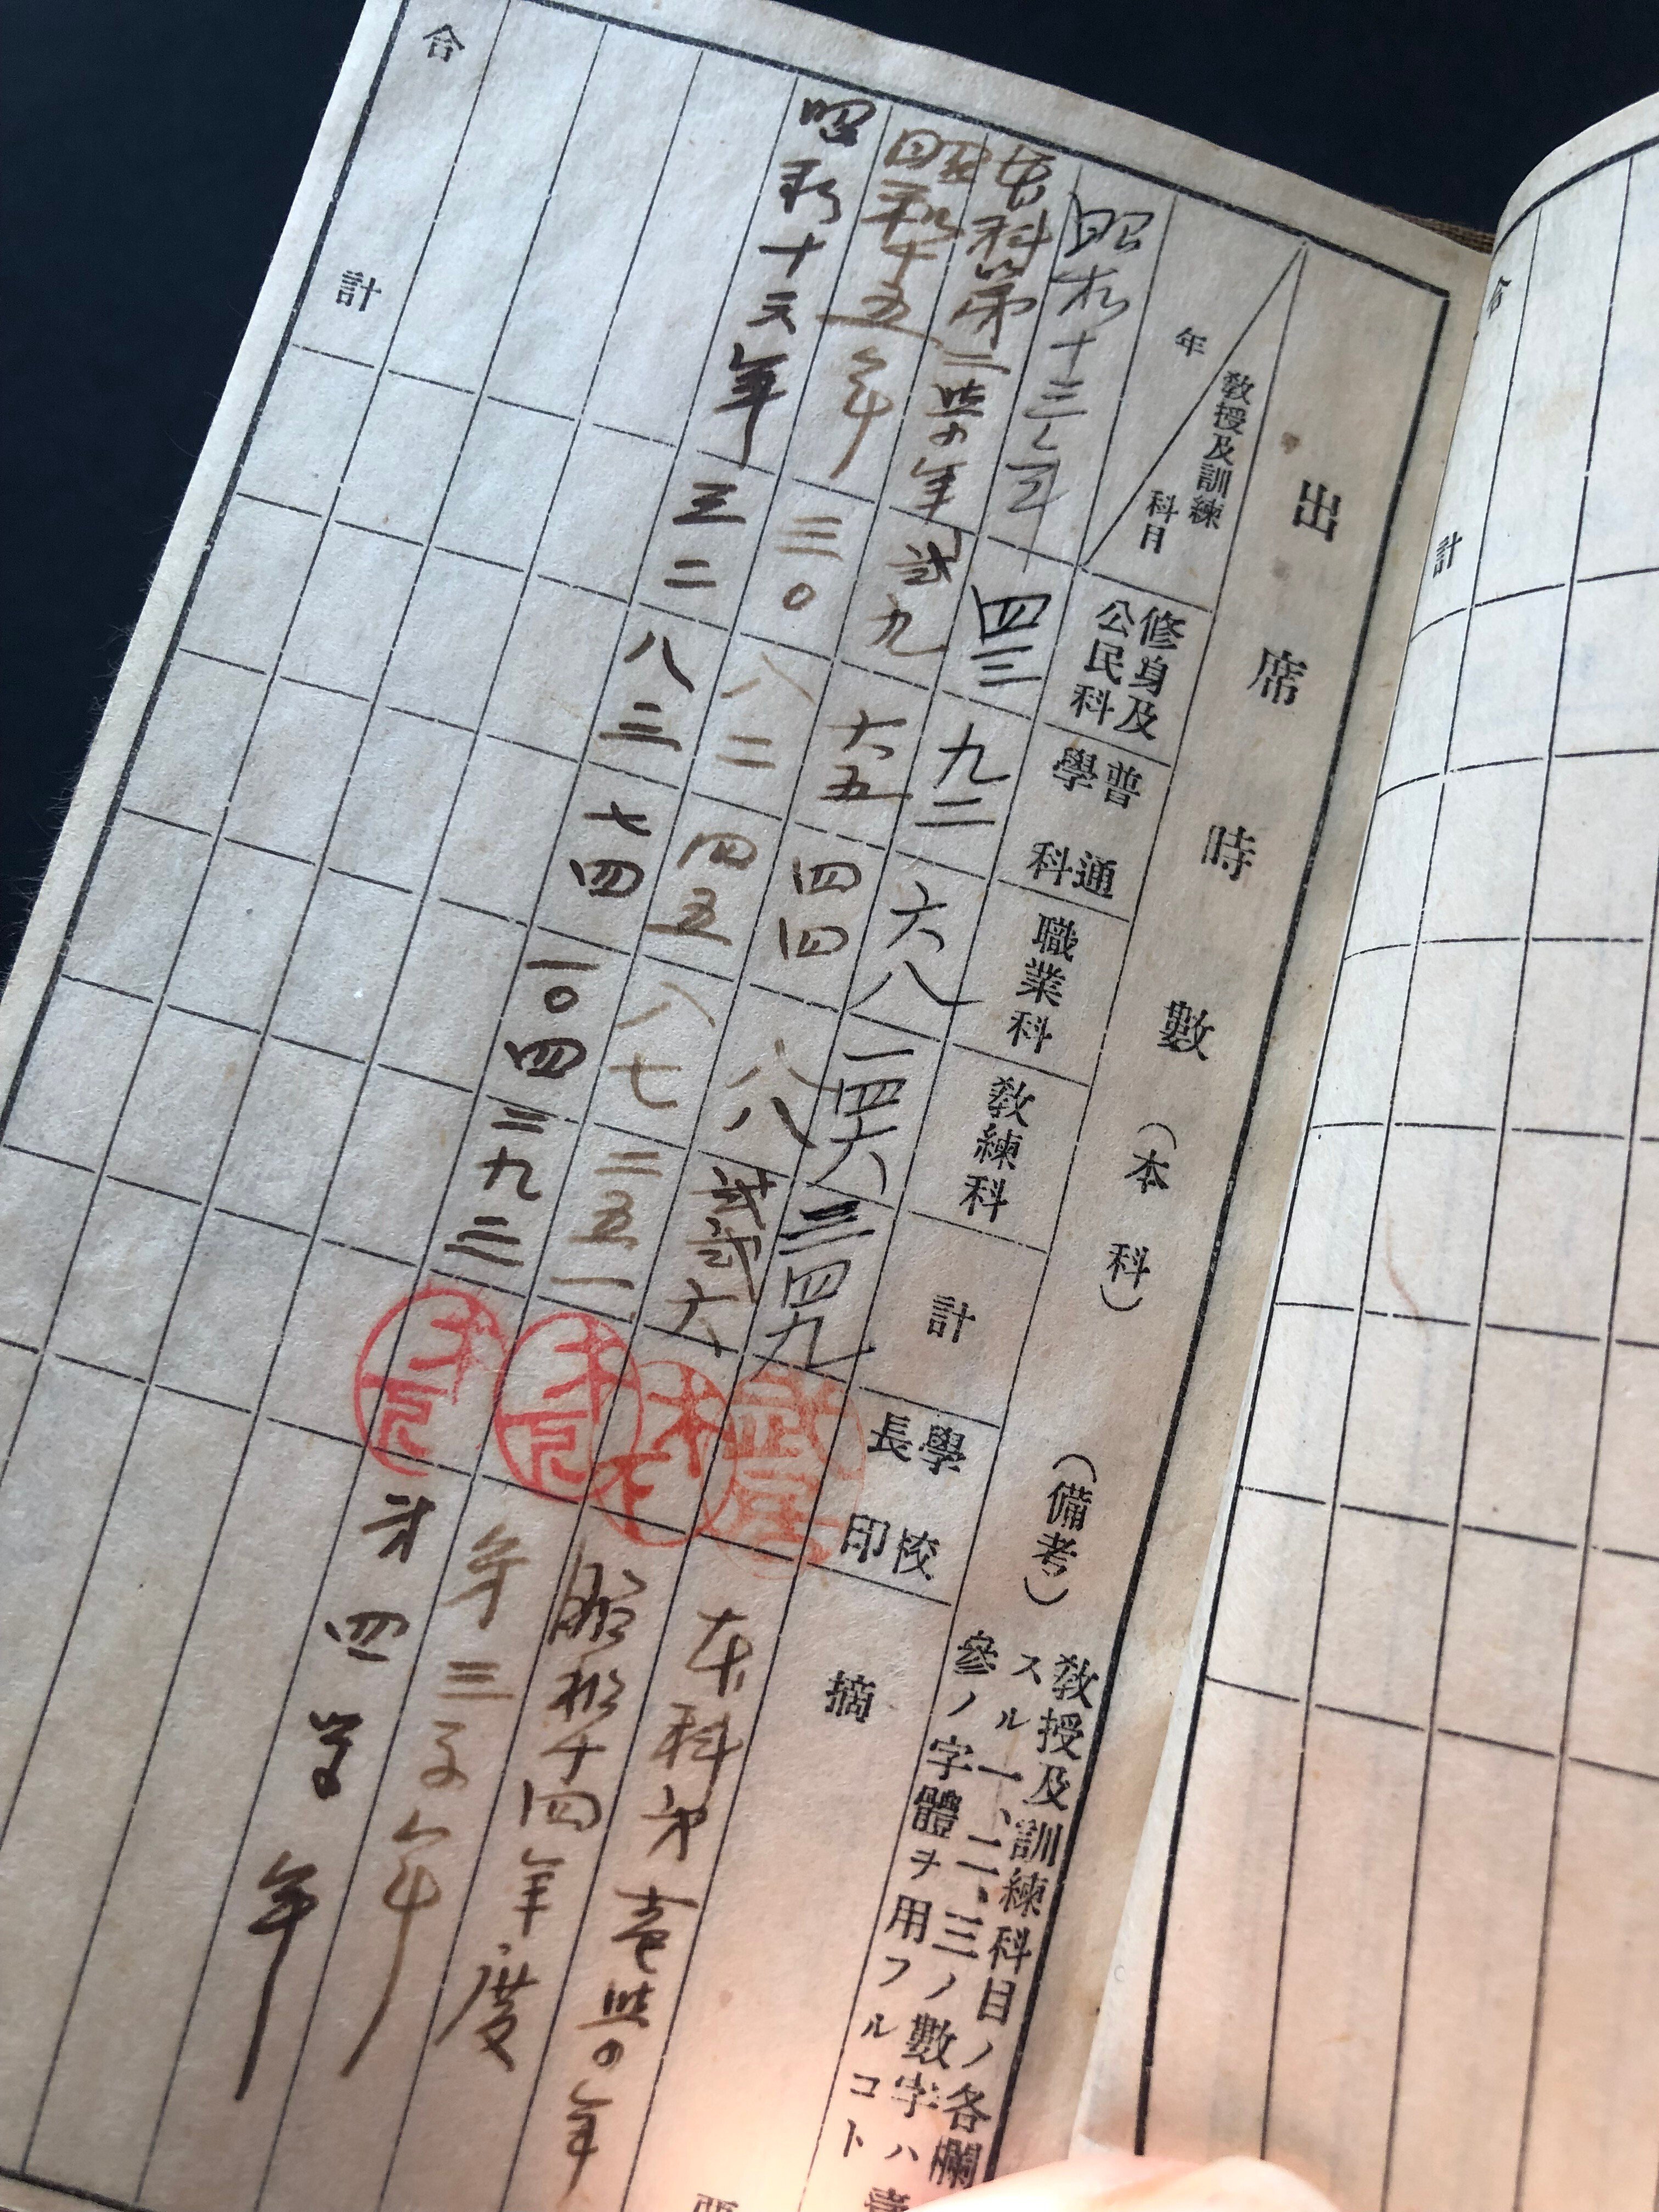 出席時數(本科)
(備考)
教授及訓練科目ノ各欄
スル一、二、三ノ數字ハ
參ノ字體ヲ用フルコト
教授及訓練
科目
年
修身及
公民科
普通
學科
職業科
教練科
計
學校
長印
摘
昭和十三年 四三 九二 六八 一四六 三四九 本科第壱學年
本科第二學年 弐九 六五 四四 八八 弐弐六 昭和十四年度
昭和十五年 三〇 八二 四五 八七 二五一 第三學年
昭和十六年 三二 八三 七四 一〇四 二九三 第四學年
合計
合
計